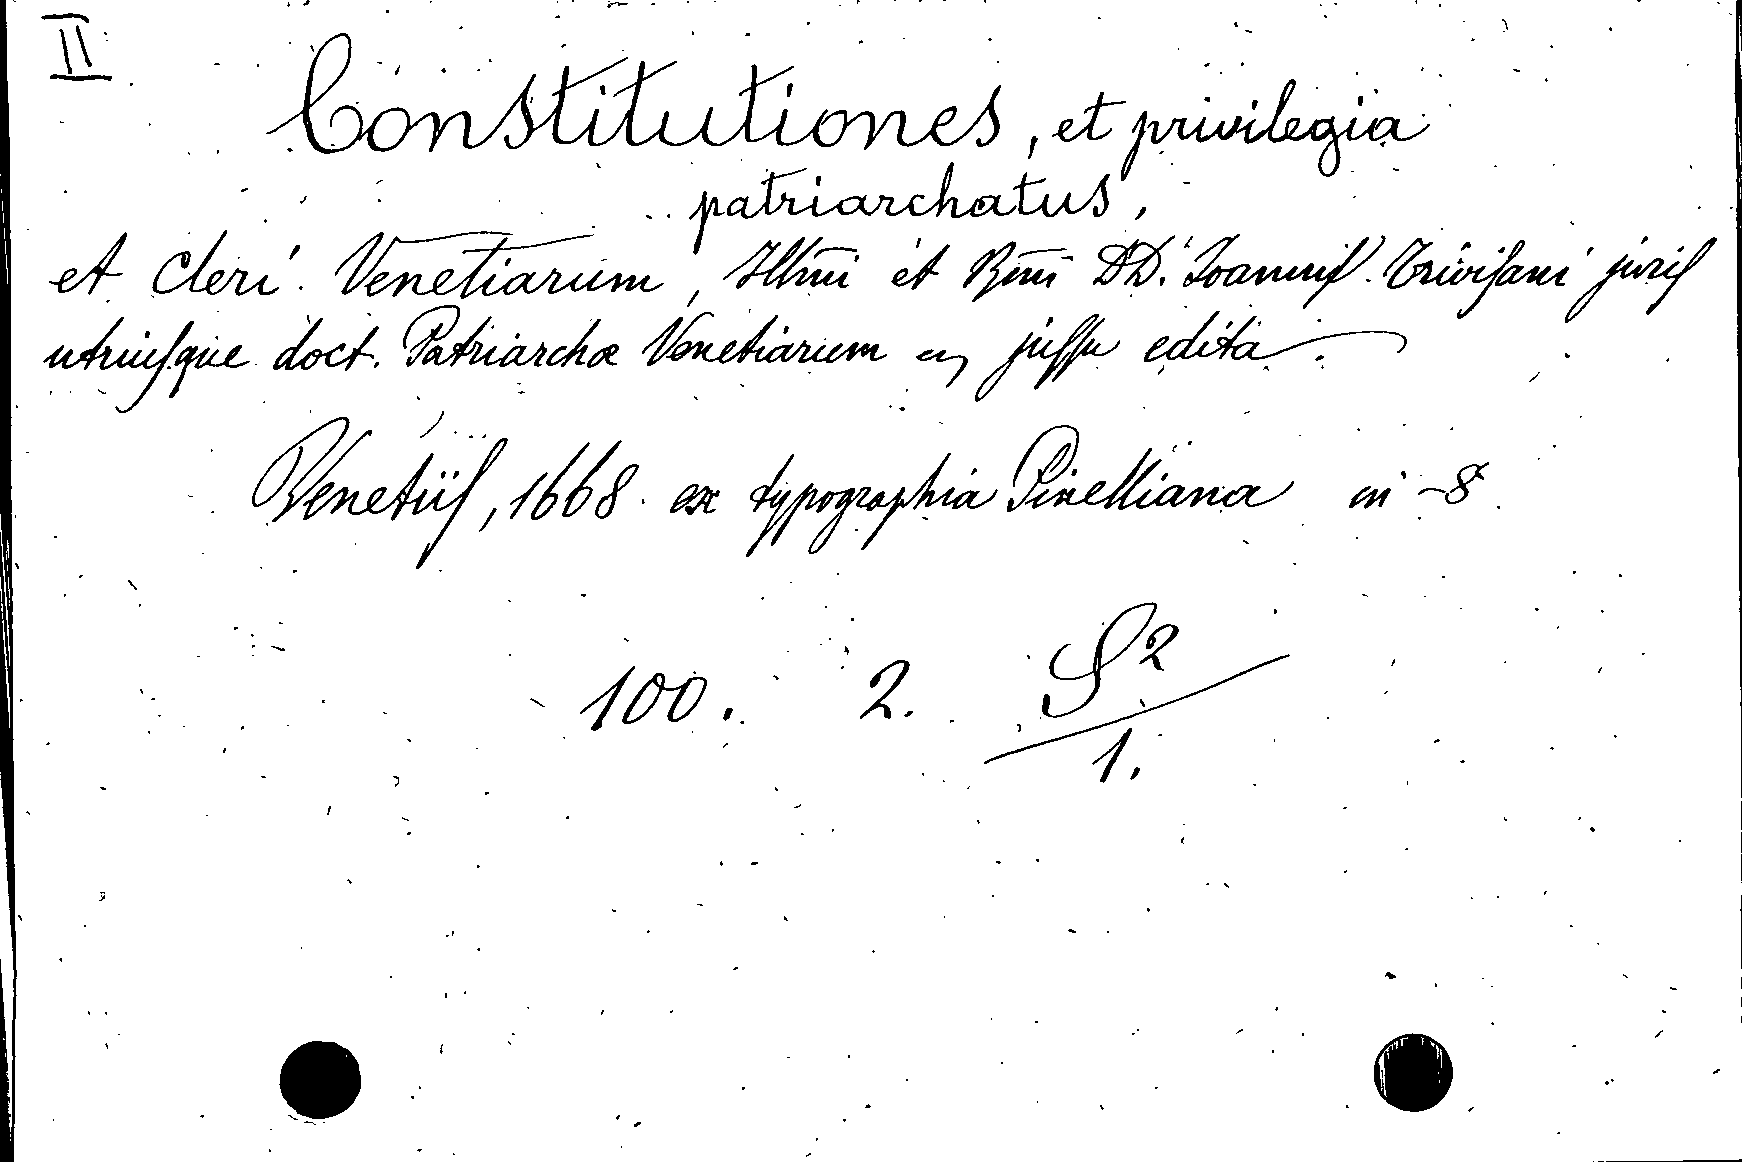 II
Constitutiones, et privilegia
patriarchatus,
et cleri Venetiarum, Illm̄i et Rm̄i DD. Ioannis Trivisani juris
utriusque doct. Patriarchæ Venetiarum jussu edita.
Venetiis, 1668 ex typographia Pinelliana in -8
100. 2. S²
1.